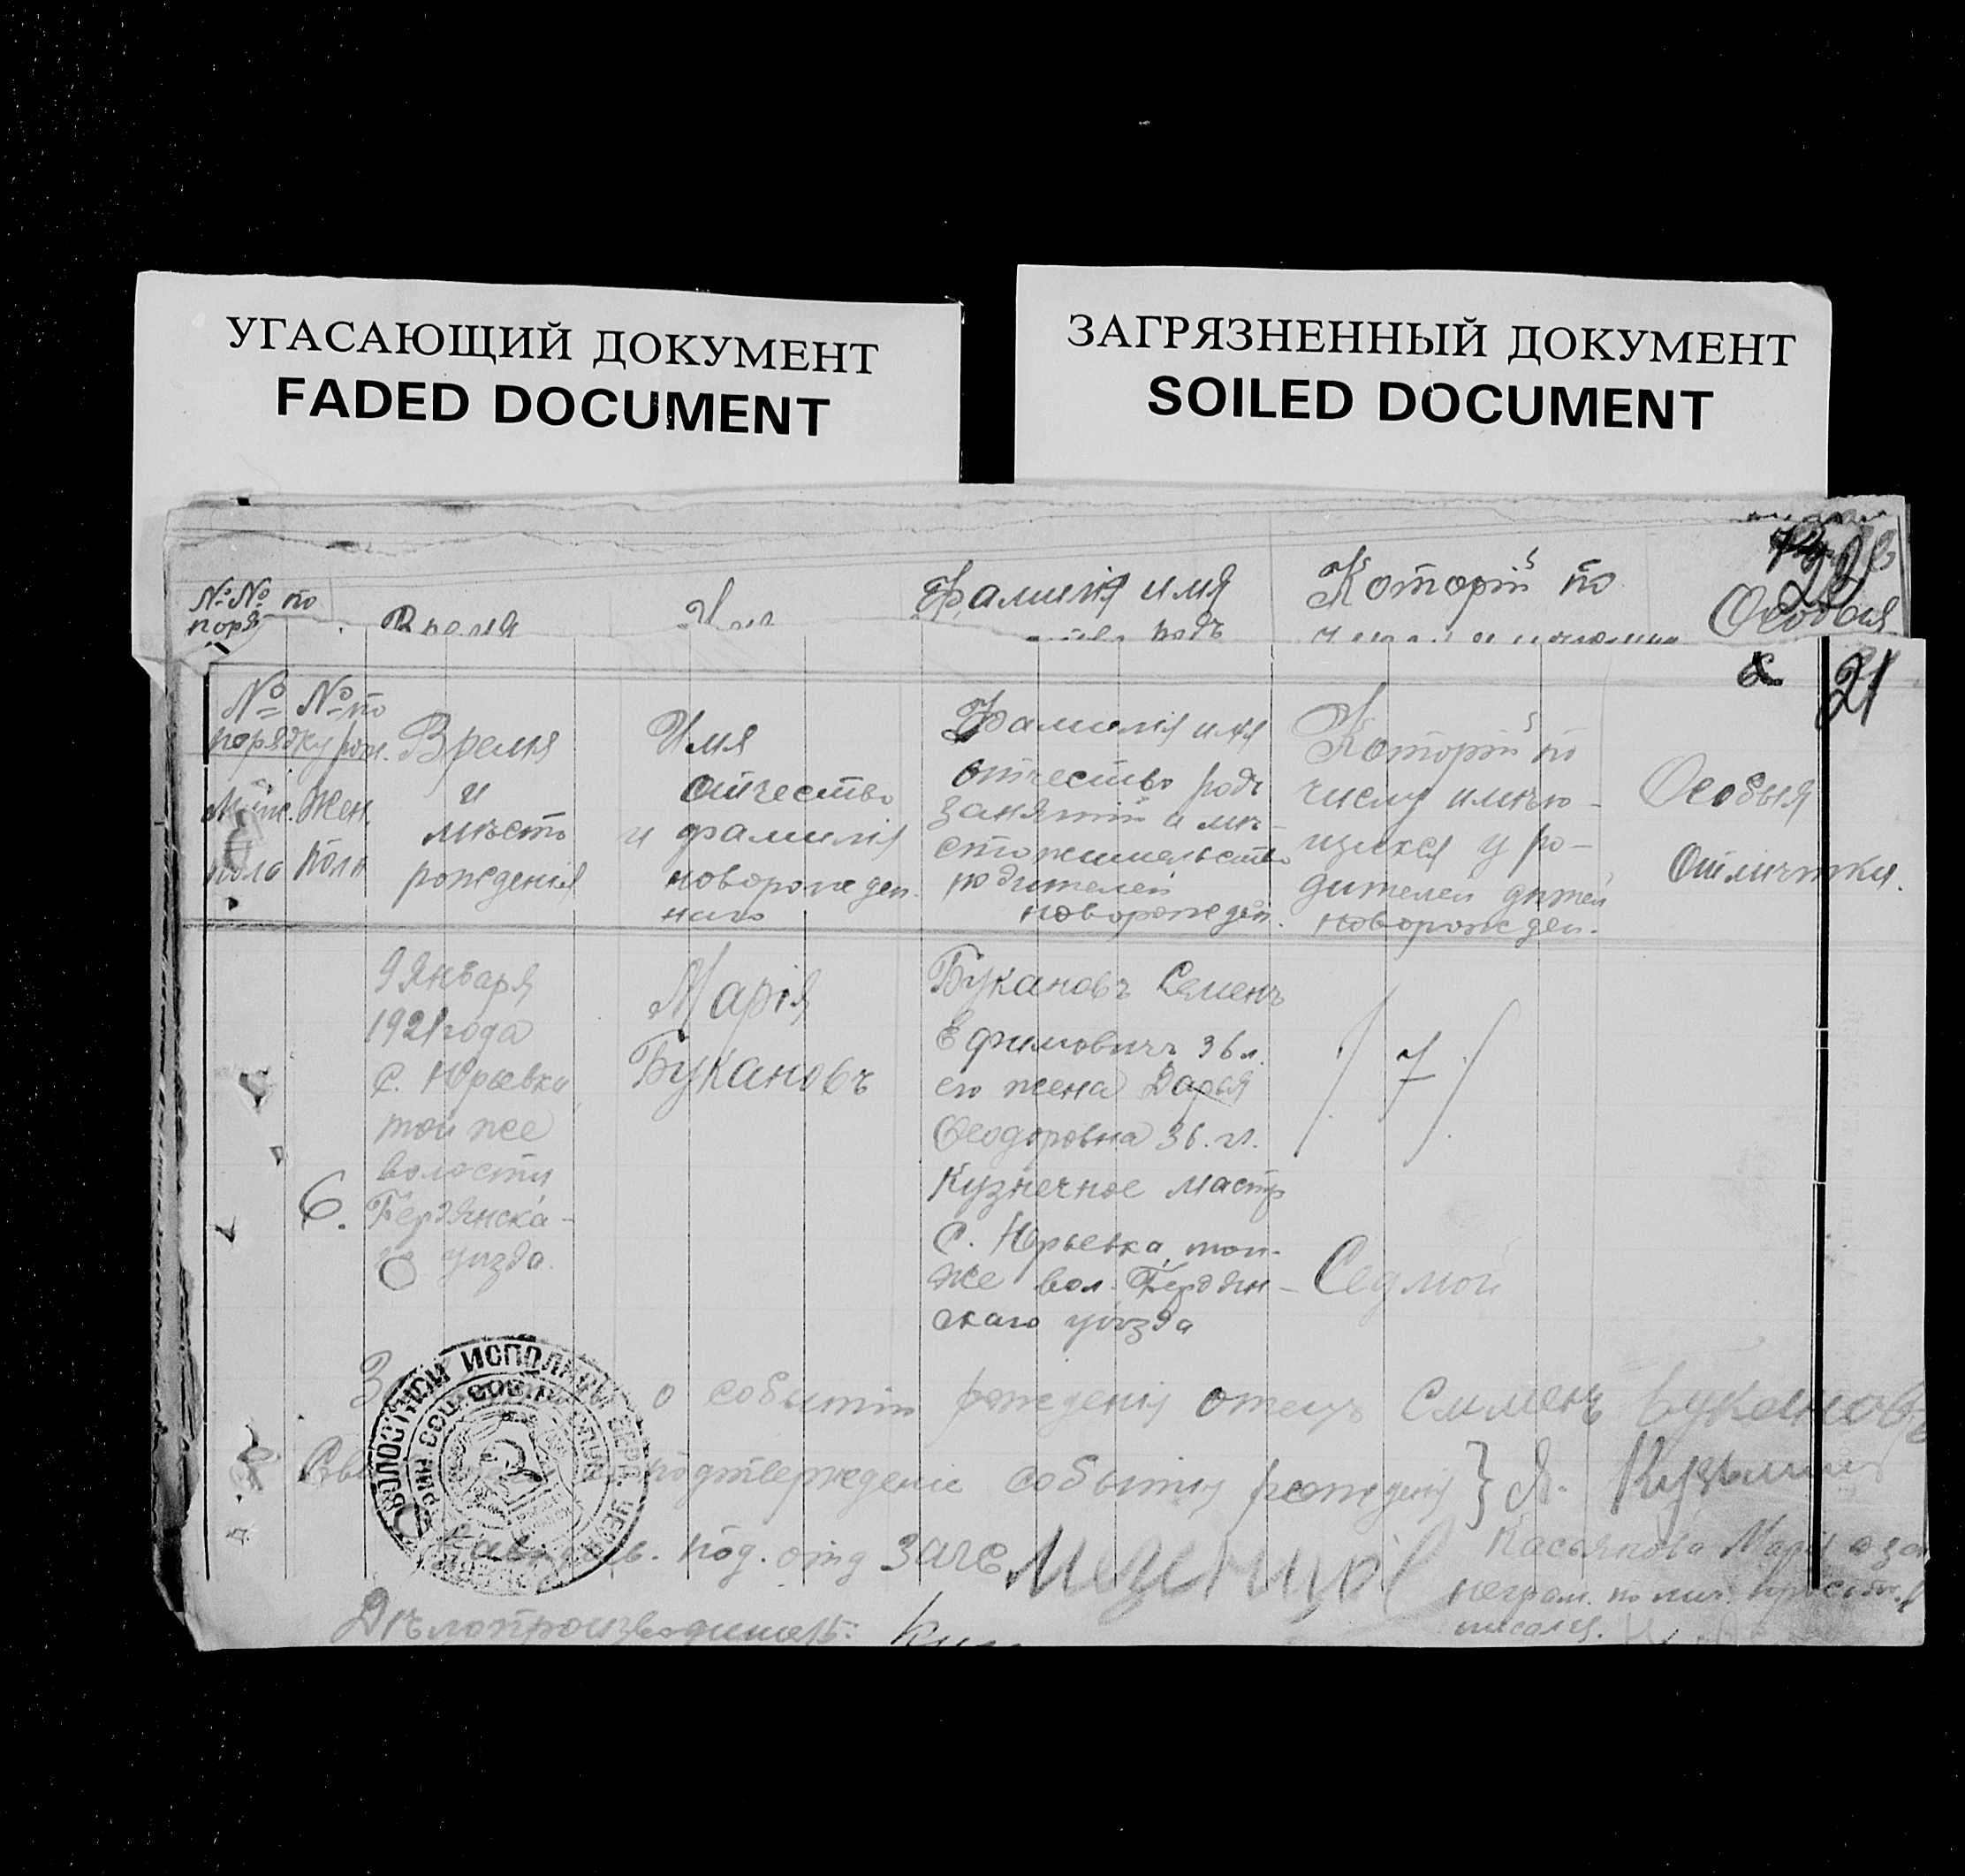 УГАСАЮЩИЙ ДОКУМЕНТ
FADED DOCUMENT
ЗАГРЯЗНЕННЫЙ ДОКУМЕНТ
SOILED DOCUMENT
№ № по
поря
Время
Имя
Фамилія имя
родъ
Которій по
Особыя
21
№ № по
порядку рож.
Муж. Жен.
пола пола
Время
и
мѣсто
рожденія
Имя
отчество
и фамилія
новорожден
наго
Фамилія имя
отчество родъ
занятій и мѣ
стожительство
родителей
новорожден.
Которій по
числу имѣю-
щихся у ро-
дителей дѣтей
новорожден.
Особыя
отмѣтки.
6.
9 Января
1921 года
с. Юрьевка
той же
волости
Бердянска-
го уѣзда.
Марія
Букановъ
Букановъ Семенъ
Ефимовичъ 36 л.
его жена Дарья
Феодоровна 36. л.
Кузнечное мастр
С. Юрьевка, той-
же вол. Бердян-
скаго уѣзда
/ 7 /
Седмой
о событіи рожденія отецъ Сименъ Букановъ
подтвержденіе событія рожденія } А. Кузьмин
ВОЛОСТНОЙ ИСПОЛНИТ
под. отд ЗАГС
Касьянова
неграм. по лич.
писался.
Дѣлопроизводитель: